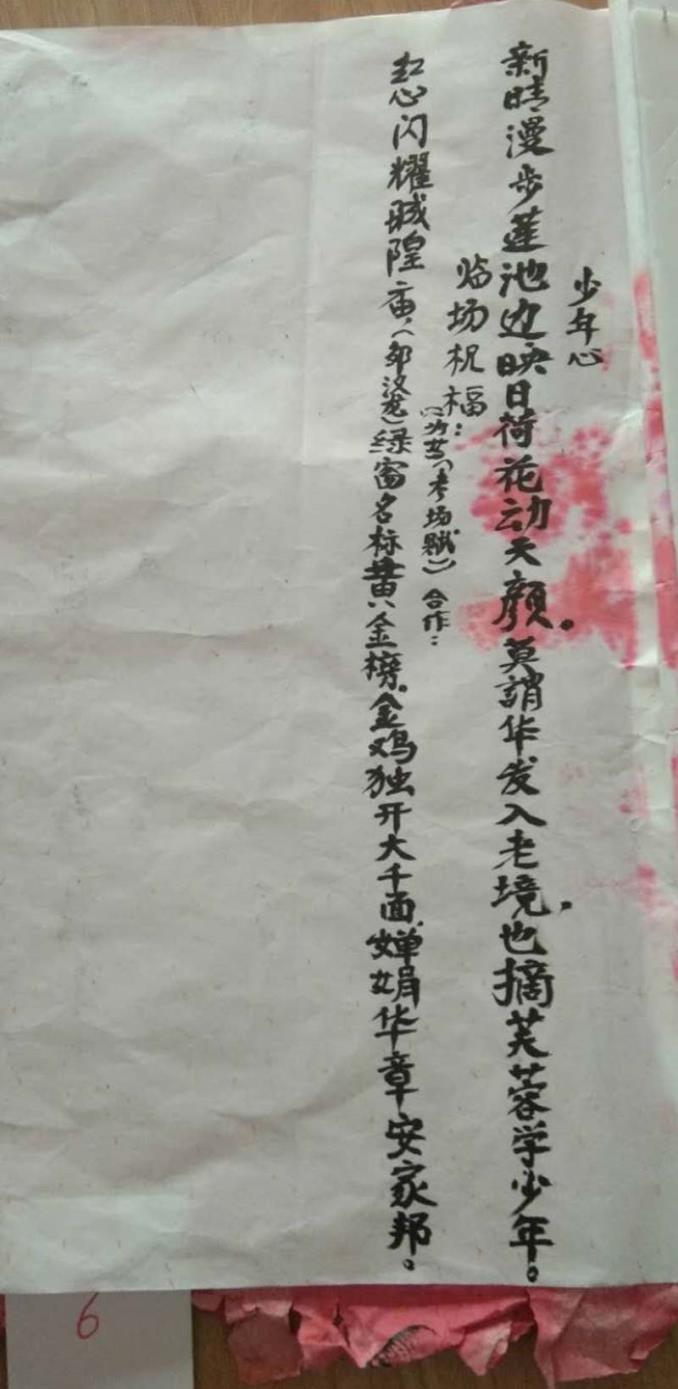 少年心
新晴漫步莲池边映日荷花动天颜。莫誚华发入老境，也摘芙蓉学少年。
临场祝福：
（为廿《考场赋》）合作：
红心闪耀城隍庙，（邹汝龙）绿窗名标黄金榜。金鸡独开大千面，婵娟华章安家邦。
6